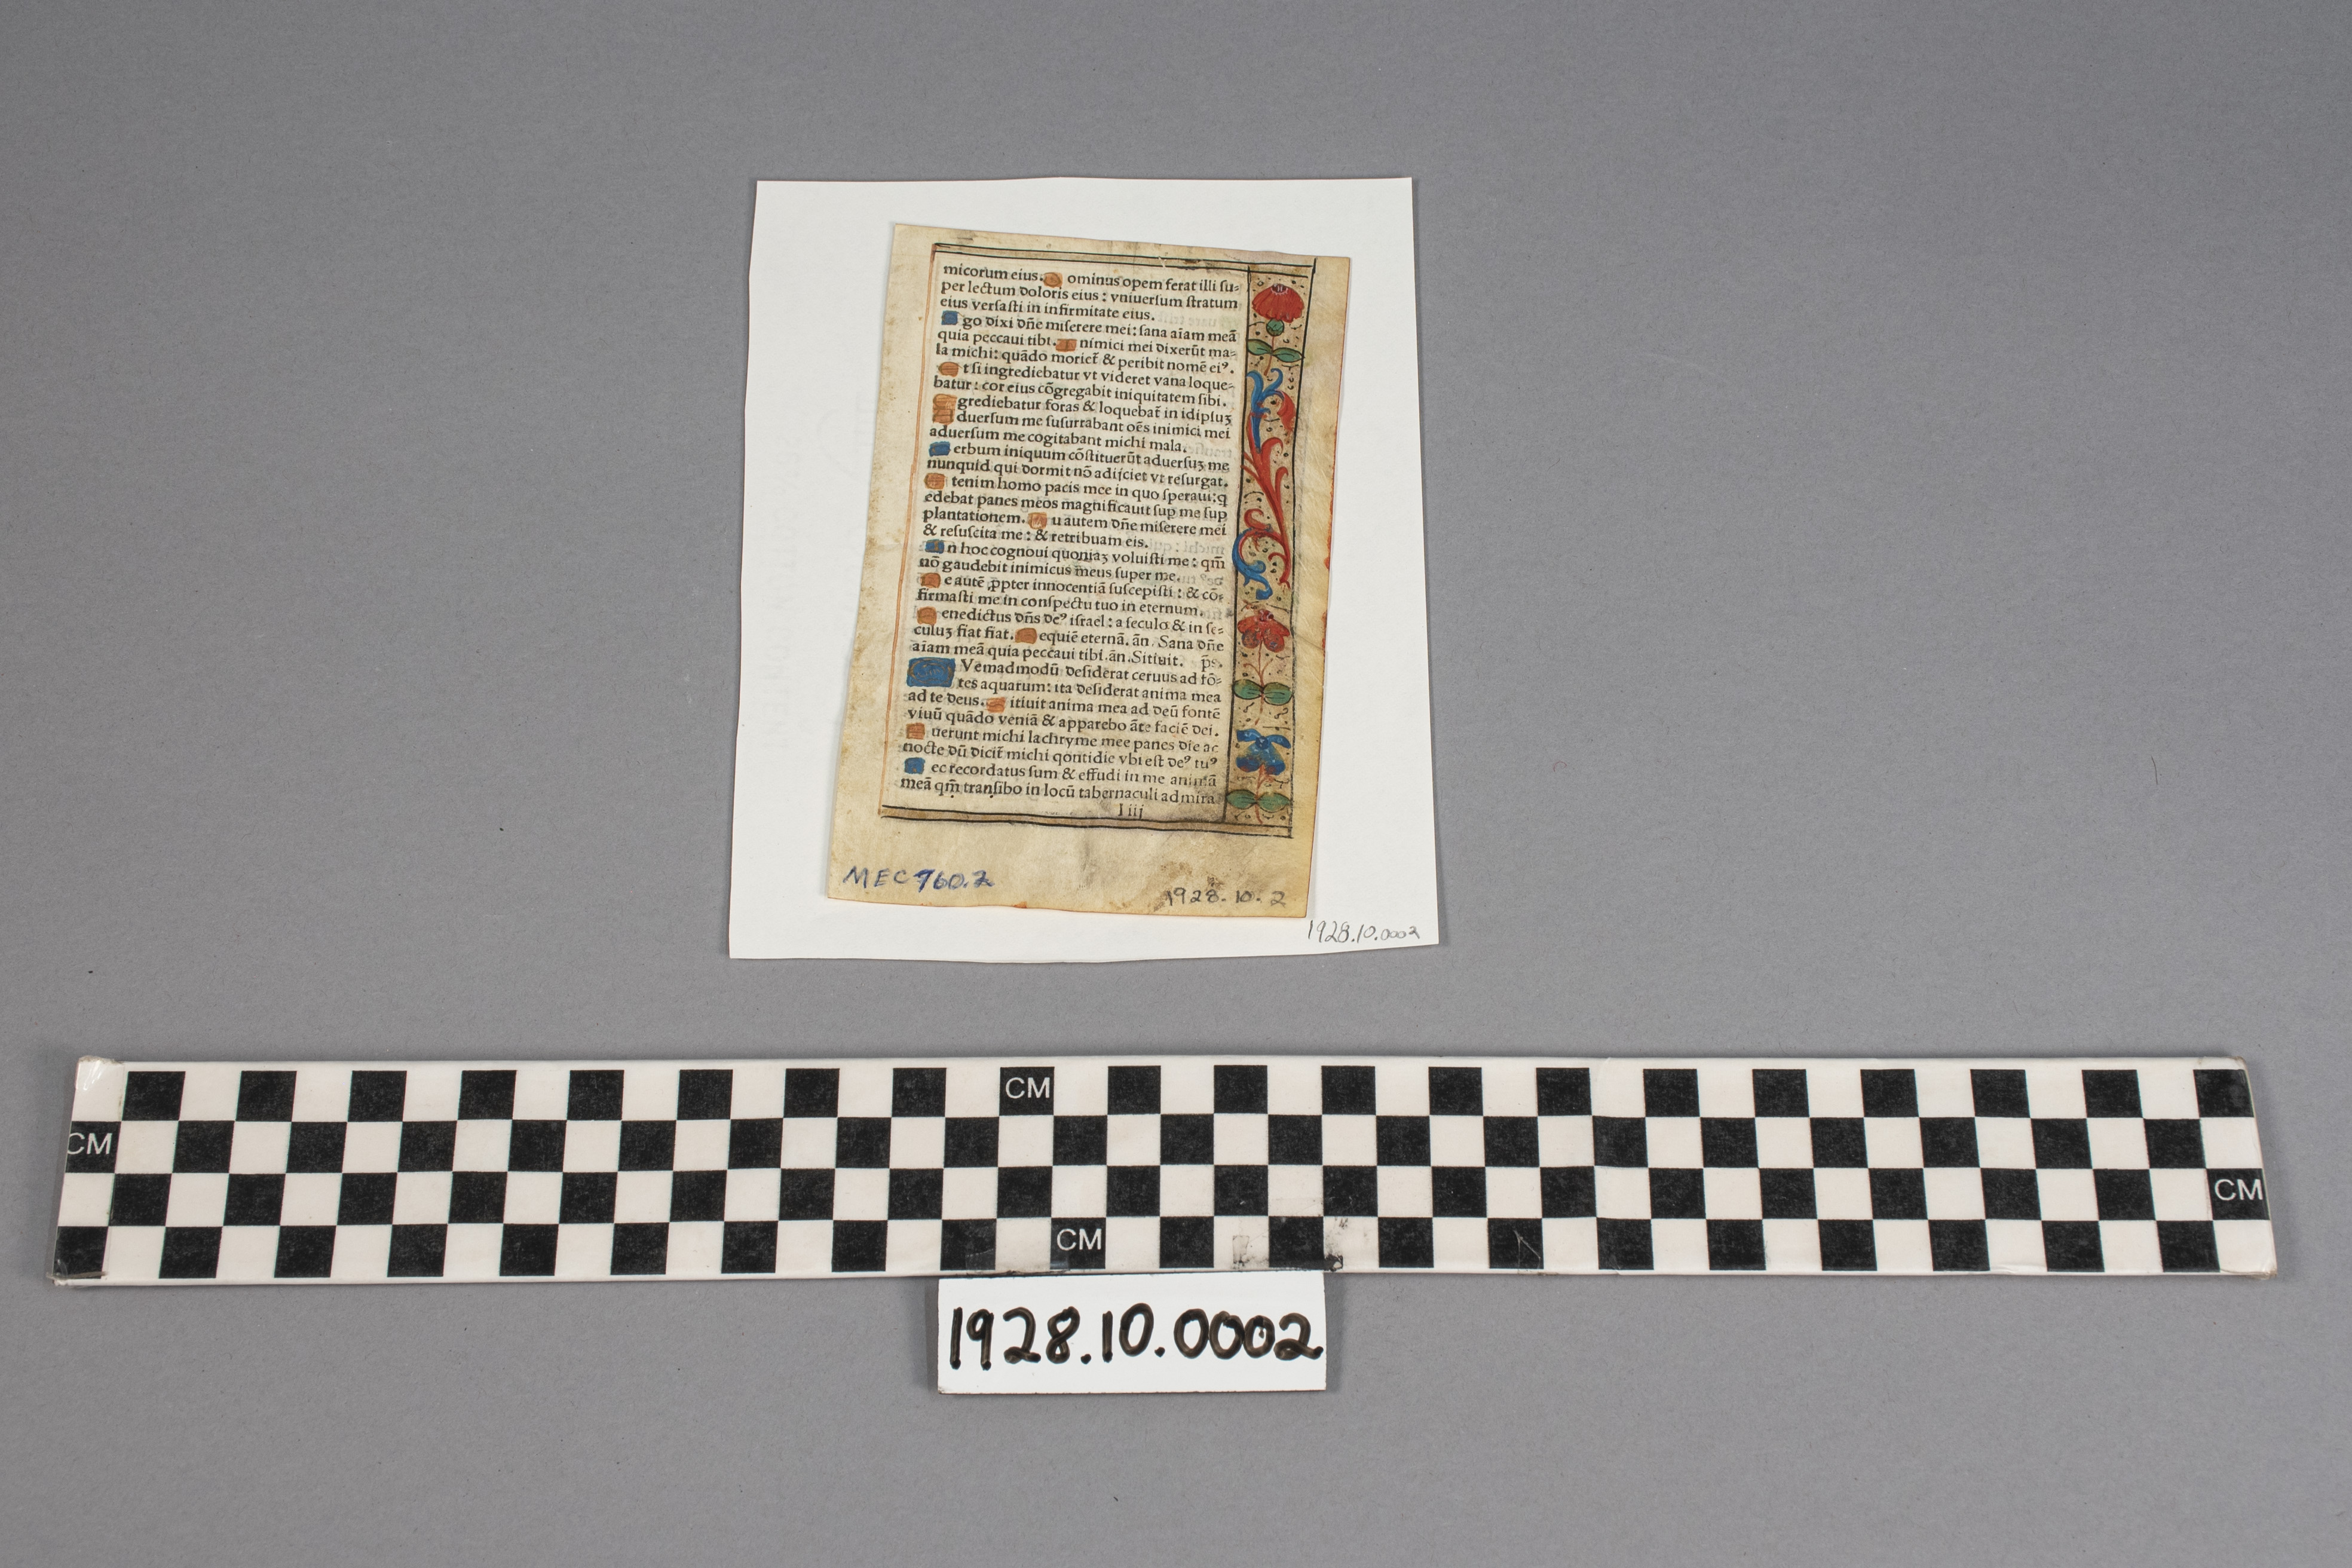 micorum eius. D ominus opem ferat illi ſu⸗
per lectum doloris eius : vniuerſum ſtratum
eius verſaſti in infirmitate eius.
E go dixi dn̄e miſerere mei : ſana aīam meā
quia peccaui tibi. I nimici mei dixerūt ma⸗
la michi: quādo moriet̄ & peribit nomē eiꝰ.
E t ſi ingrediebatur vt videret vana loque⸗
batur : cor eius cōgregabit iniquitatem ſibi.
E grediebatur foras & loquebat̄ in idipſuꝫ
A duerſum me ſuſurrabant oēs inimici mei
aduerſum me cogitabant michi mala.
V erbum iniquum cōſtituerūt aduerſuꝫ me
nunquid qui dormit nō adijciet vt reſurgat.
E tenim homo pacis mee in quo ſperaui: q̄
edebat panes meos magnificauit ſup me ſup
plantationem. T u autem dn̄e miſerere mei
& reſuſcita me : & retribuam eis.
I n hoc cognoui quoniaꝫ voluiſti me : qm̄
nō gaudebit inimicus meus ſuper me.
M e autē ꝓpter innocentiā ſuſcepiſti : & cō⸗
firmaſti me in conſpectu tuo in eternum.
B enedictus dn̄s deꝰ iſrael : a ſeculo & in ſe⸗
culuꝫ fiat fiat. R equiē eternā. ān. Sana dn̄e
aīam meā quia peccaui tibi. ān. Sitiuit. p̄s.
Q Vemadmodū deſiderat ceruus ad fō⸗
tes aquarum: ita deſiderat anima mea
ad te deus. S itiuit anima mea ad deū fontē
viuū quādo veniā & apparebo āte faciē dei.
F uerunt michi lachryme mee panes die ac
nocte dū dicit̄ michi qontidie vbi eſt deꝰ tuꝰ
H ec recordatus ſum & effudi in me animā
meā qm̄ tranſibo in locū tabernaculi admira
l iij
MEC 760.2
1928.10.2
1928.10.0002
CM
CM
CM
CM
1928.10.0002